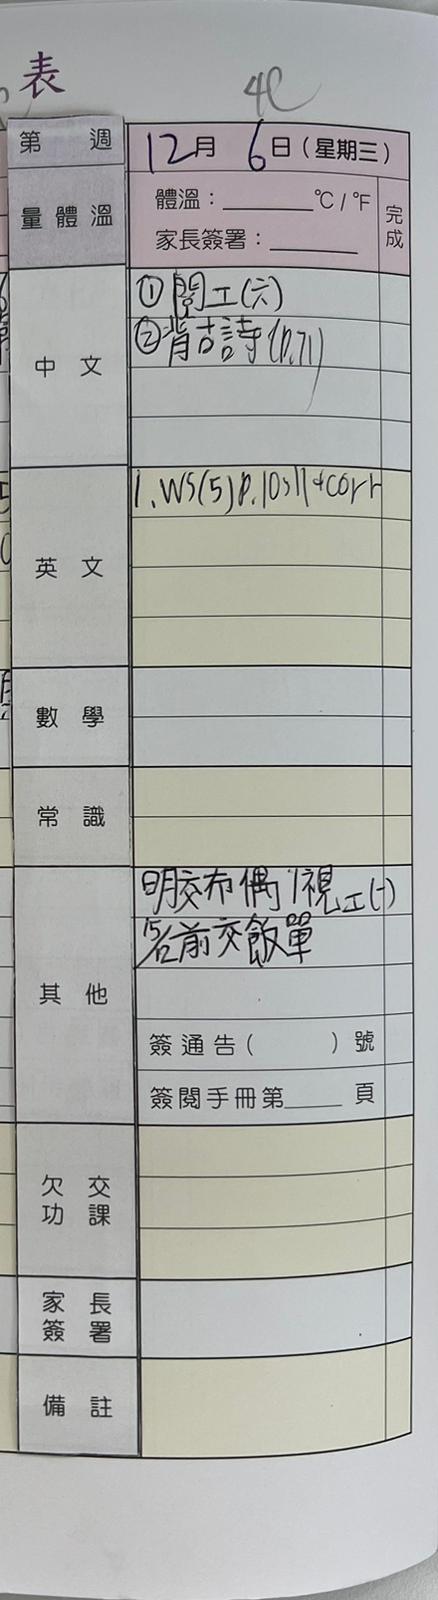 表
4C
第 週
12月 6日(星期三)
量體溫
體溫:______°C / °F
家長簽署:______
完成
中文
①閱工(六)
②背古詩(P.71)
英文
1. WS(5) P.10,11+corr
數學
常識
其他
明交布偶 視工(一)
前交飯單
簽通告( )號
簽閱手冊第____頁
欠交功課
家長簽署
備註